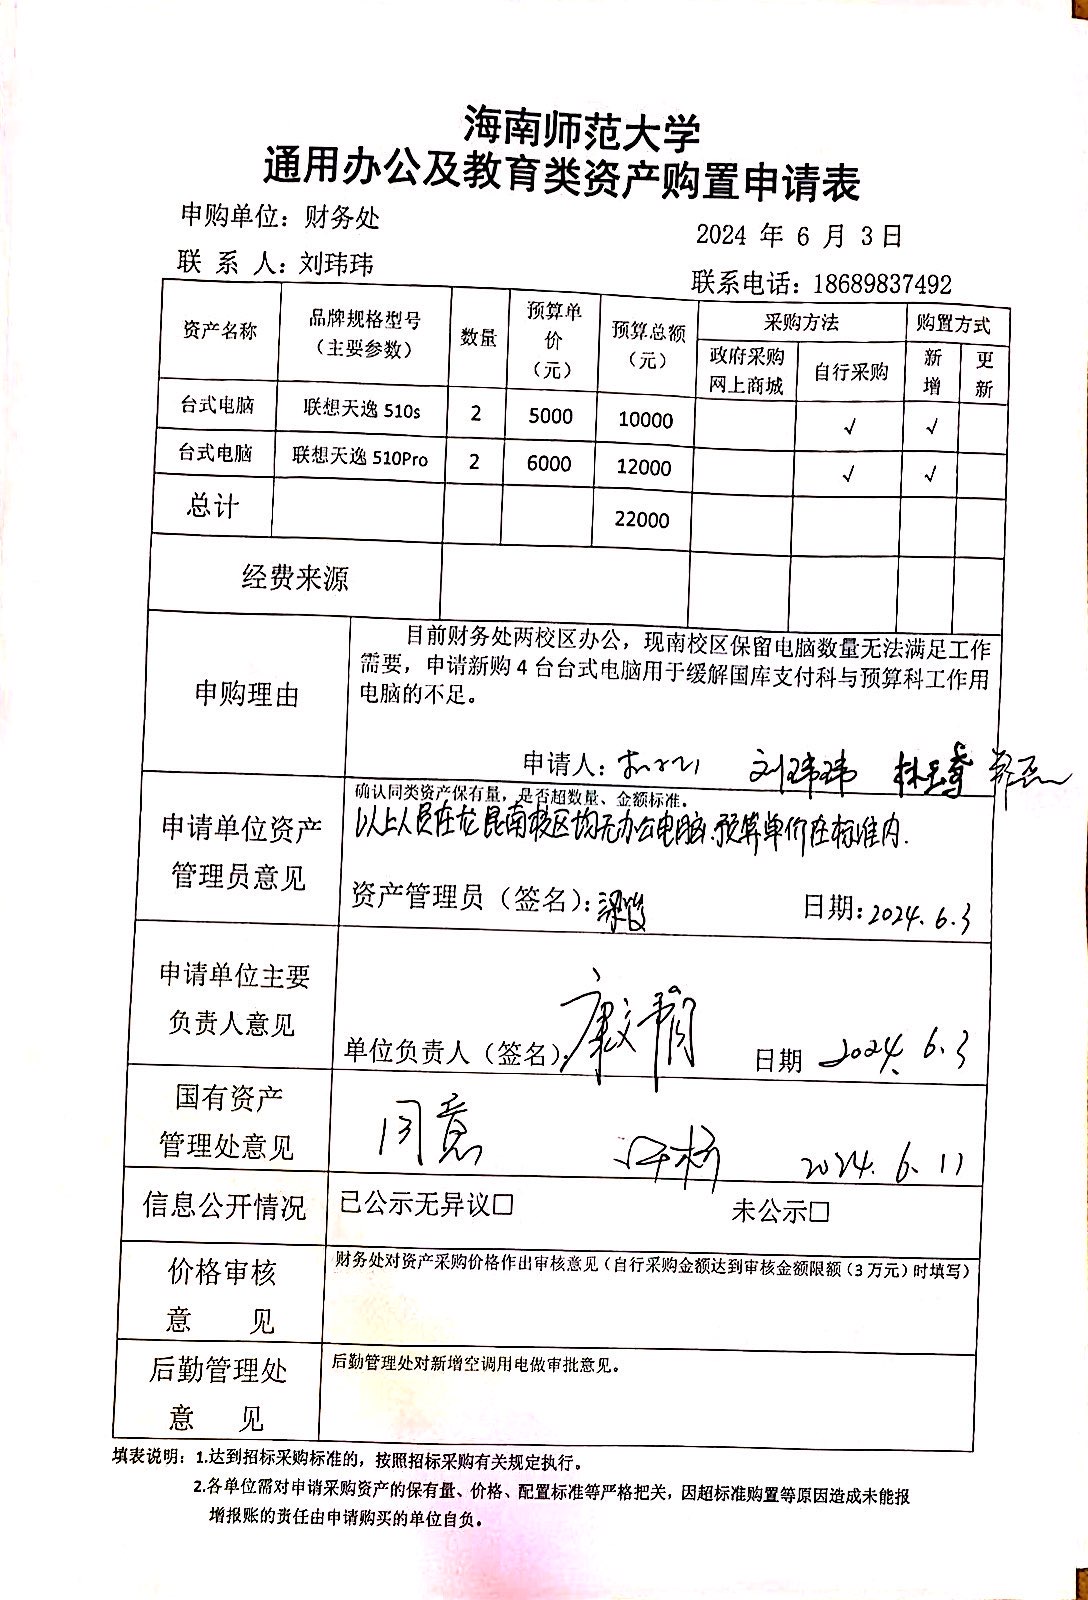 海南师范大学
通用办公及教育类资产购置申请表
申购单位：财务处
2024 年 6 月 3日
联 系 人：刘玮玮
联系电话：18689837492
资产名称 品牌规格型号（主要参数） 数量 预算单价（元） 预算总额（元） 采购方法 购置方式
政府采购网上商城 自行采购 新增 更新
台式电脑 联想天逸 510s 2 5000 10000 √ √
台式电脑 联想天逸 510Pro 2 6000 12000 √ √
总计 22000
经费来源
申购理由
目前财务处两校区办公，现南校区保留电脑数量无法满足工作
需要，申请新购 4 台台式电脑用于缓解国库支付科与预算科工作用
电脑的不足。
申请人： 刘玮玮
申请单位资产
管理员意见
确认同类资产保有量，是否超数量、金额标准。
以上人员在龙昆南校区均无办公电脑.预算单价在标准内.
资产管理员（签名）： 日期：2024.6.3
申请单位主要
负责人意见
单位负责人（签名）： 日期 2024.6.3
国有资产
管理处意见
同意 2024.6.11
信息公开情况 已公示无异议□ 未公示□
价格审核
意 见
财务处对资产采购价格作出审核意见（自行采购金额达到审核金额限额（3 万元）时填写）
后勤管理处
意 见
后勤管理处对新增空调用电做审批意见。
填表说明：1.达到招标采购标准的，按照招标采购有关规定执行。
2.各单位需对申请采购资产的保有量、价格、配置标准等严格把关，因超标准购置等原因造成未能报
增报账的责任由申请购买的单位自负。